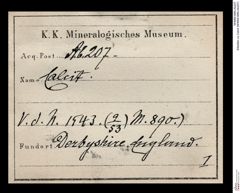 K. K. Mineralogisches Museum.
Acq. Post. Ab. 207.
Nam Calcit.
V. d. N. 1543. (2/53) M. 890.)
Fundort Derbyshire England.
1